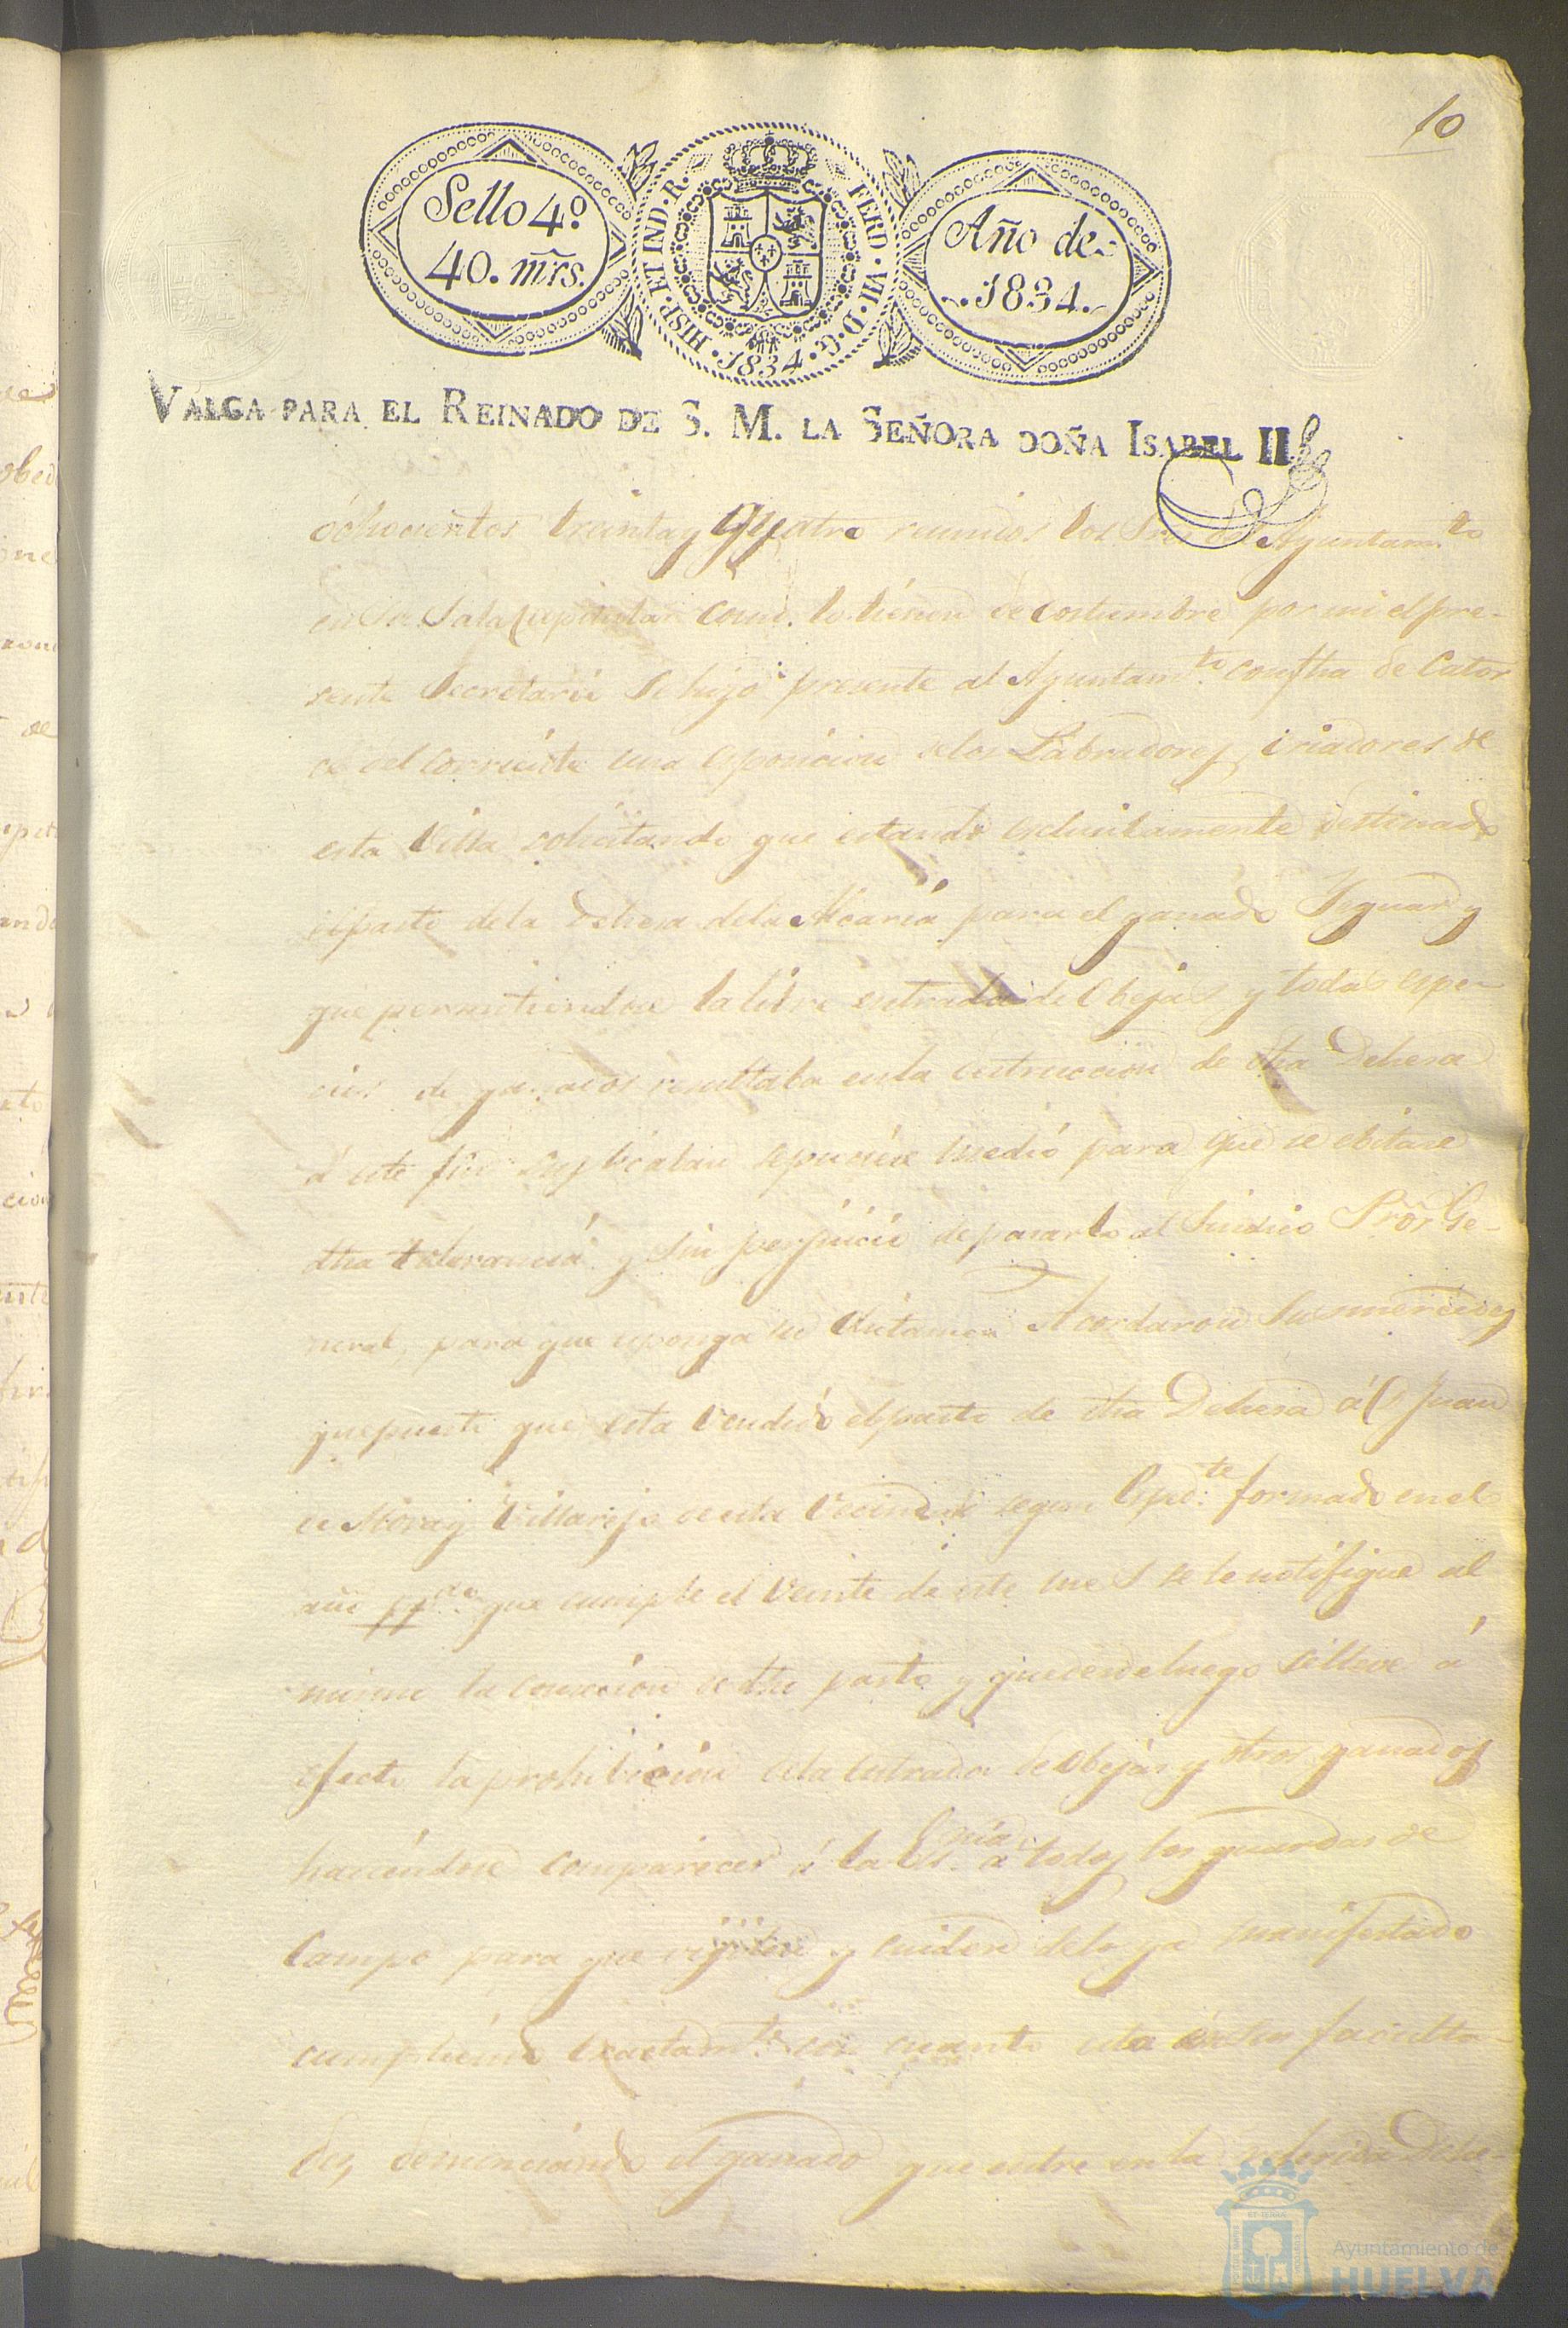 10
Sello 4º
40. mrs.
HISP. ET IND. R. FERD. VII. D. G. 1834
Año de
1834.
VALGA PARA EL REINADO DE S. M. LA SEÑORA DOÑA ISABEL II
ôchocientos treinta y Quatro reunidos los Sres del Ayuntam.to
en su Sala Capitular como lo tienen de costumbre por mi el pre-
sente Secretario se hizo presente al Ayuntam.to con fha de Cator
ce del corriente una esposicion de los Labradores, criadores de
esta Villa solicitando que estando esclusibamente destinado
el pasto de la Dehesa de la Alcaria para el ganado Yeguar y
que permitiendose la libre entrada de Obejas y todas espe-
cies de ganados resultaba en la destruccion de dha Dehesa
á este fin suplicaban se pusiese medio para que se ebitase
dha tolerancia y sin perjuicio de pasarlo al Sindico Pror Ge-
neral, para que esponga su dictamen Acordaron sus mercedes
que puesto que esta vendido el pasto de dha Dehesa á D Juan
de Mora y Villarejo de esta Vecindad segun Esped.te formado en el
año pp.do que cumple el veinte de este mes se le notifique al
mismo la conclusion de dho pasto y que desde luego se lleve á
efecto la prohibicion de la entrada de obejas y otros ganados
haciendose comparecer á la Es.nia á todos los guardas de
Campo para que vigilen y cuiden de lo ya manifestado
cumpliendo exactam.te con cuanto esta en sus faculta-
des, denunciando el ganado que entre en la referida Dehe-
Ayuntamiento de
HUELVA